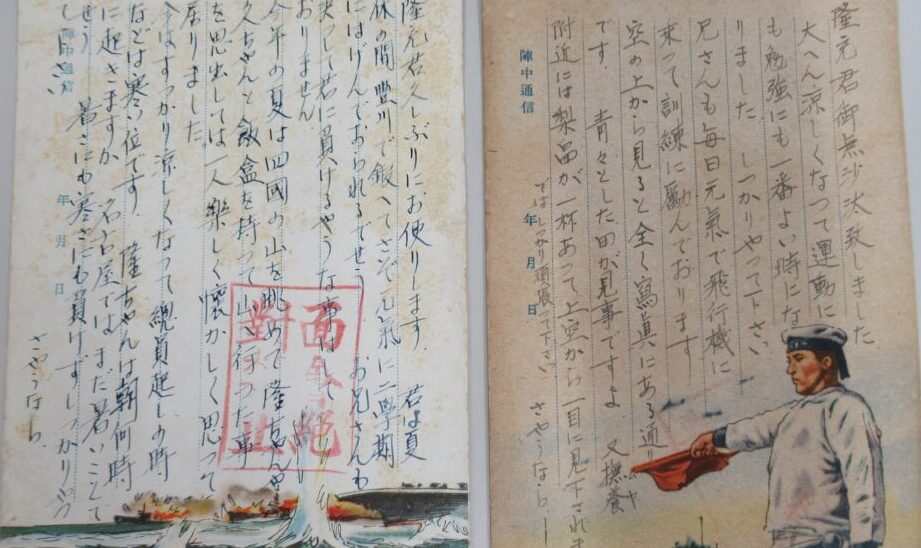 隆元君御無沙汰致しました
大へん涼しくなつて運動に
も勉強にも一番よい時にな
りました しつかりやつて下さい
兄さんも毎日元氣で飛行機に
乗つて訓練に励んでおります
空の上から見ると全く寫眞にある通り
です 青々とした田が見事ですよ 又撫養
附近には梨畠が一杯あつて上空から一目に見下されま
ではしつかり頑張つて下さい さやうならー
陣中通信
年 月 日
隆元君久しぶりにお便りします 君は夏
休の間豊川で鍛へてさぞ元氣に二学期
にはげんでおられるでせう お兄さんも
決つして君に負けるやうな事はして
おりません
今年の夏は四國の山を眺めて隆ちやんや
久ちやんと飯盒を持つて山に行つた事
を思出しては一人楽しく懐かしく思つて
居りました
今はすつかり涼しくなつて総員起しの時
などは寒い位です。 隆ちやんは朝何時
に起きますか 名古屋ではまだ暑いことで
せう 暑さにも寒さにも負けずしつかりやつ
さやうなら
陣中通信
年 月 日